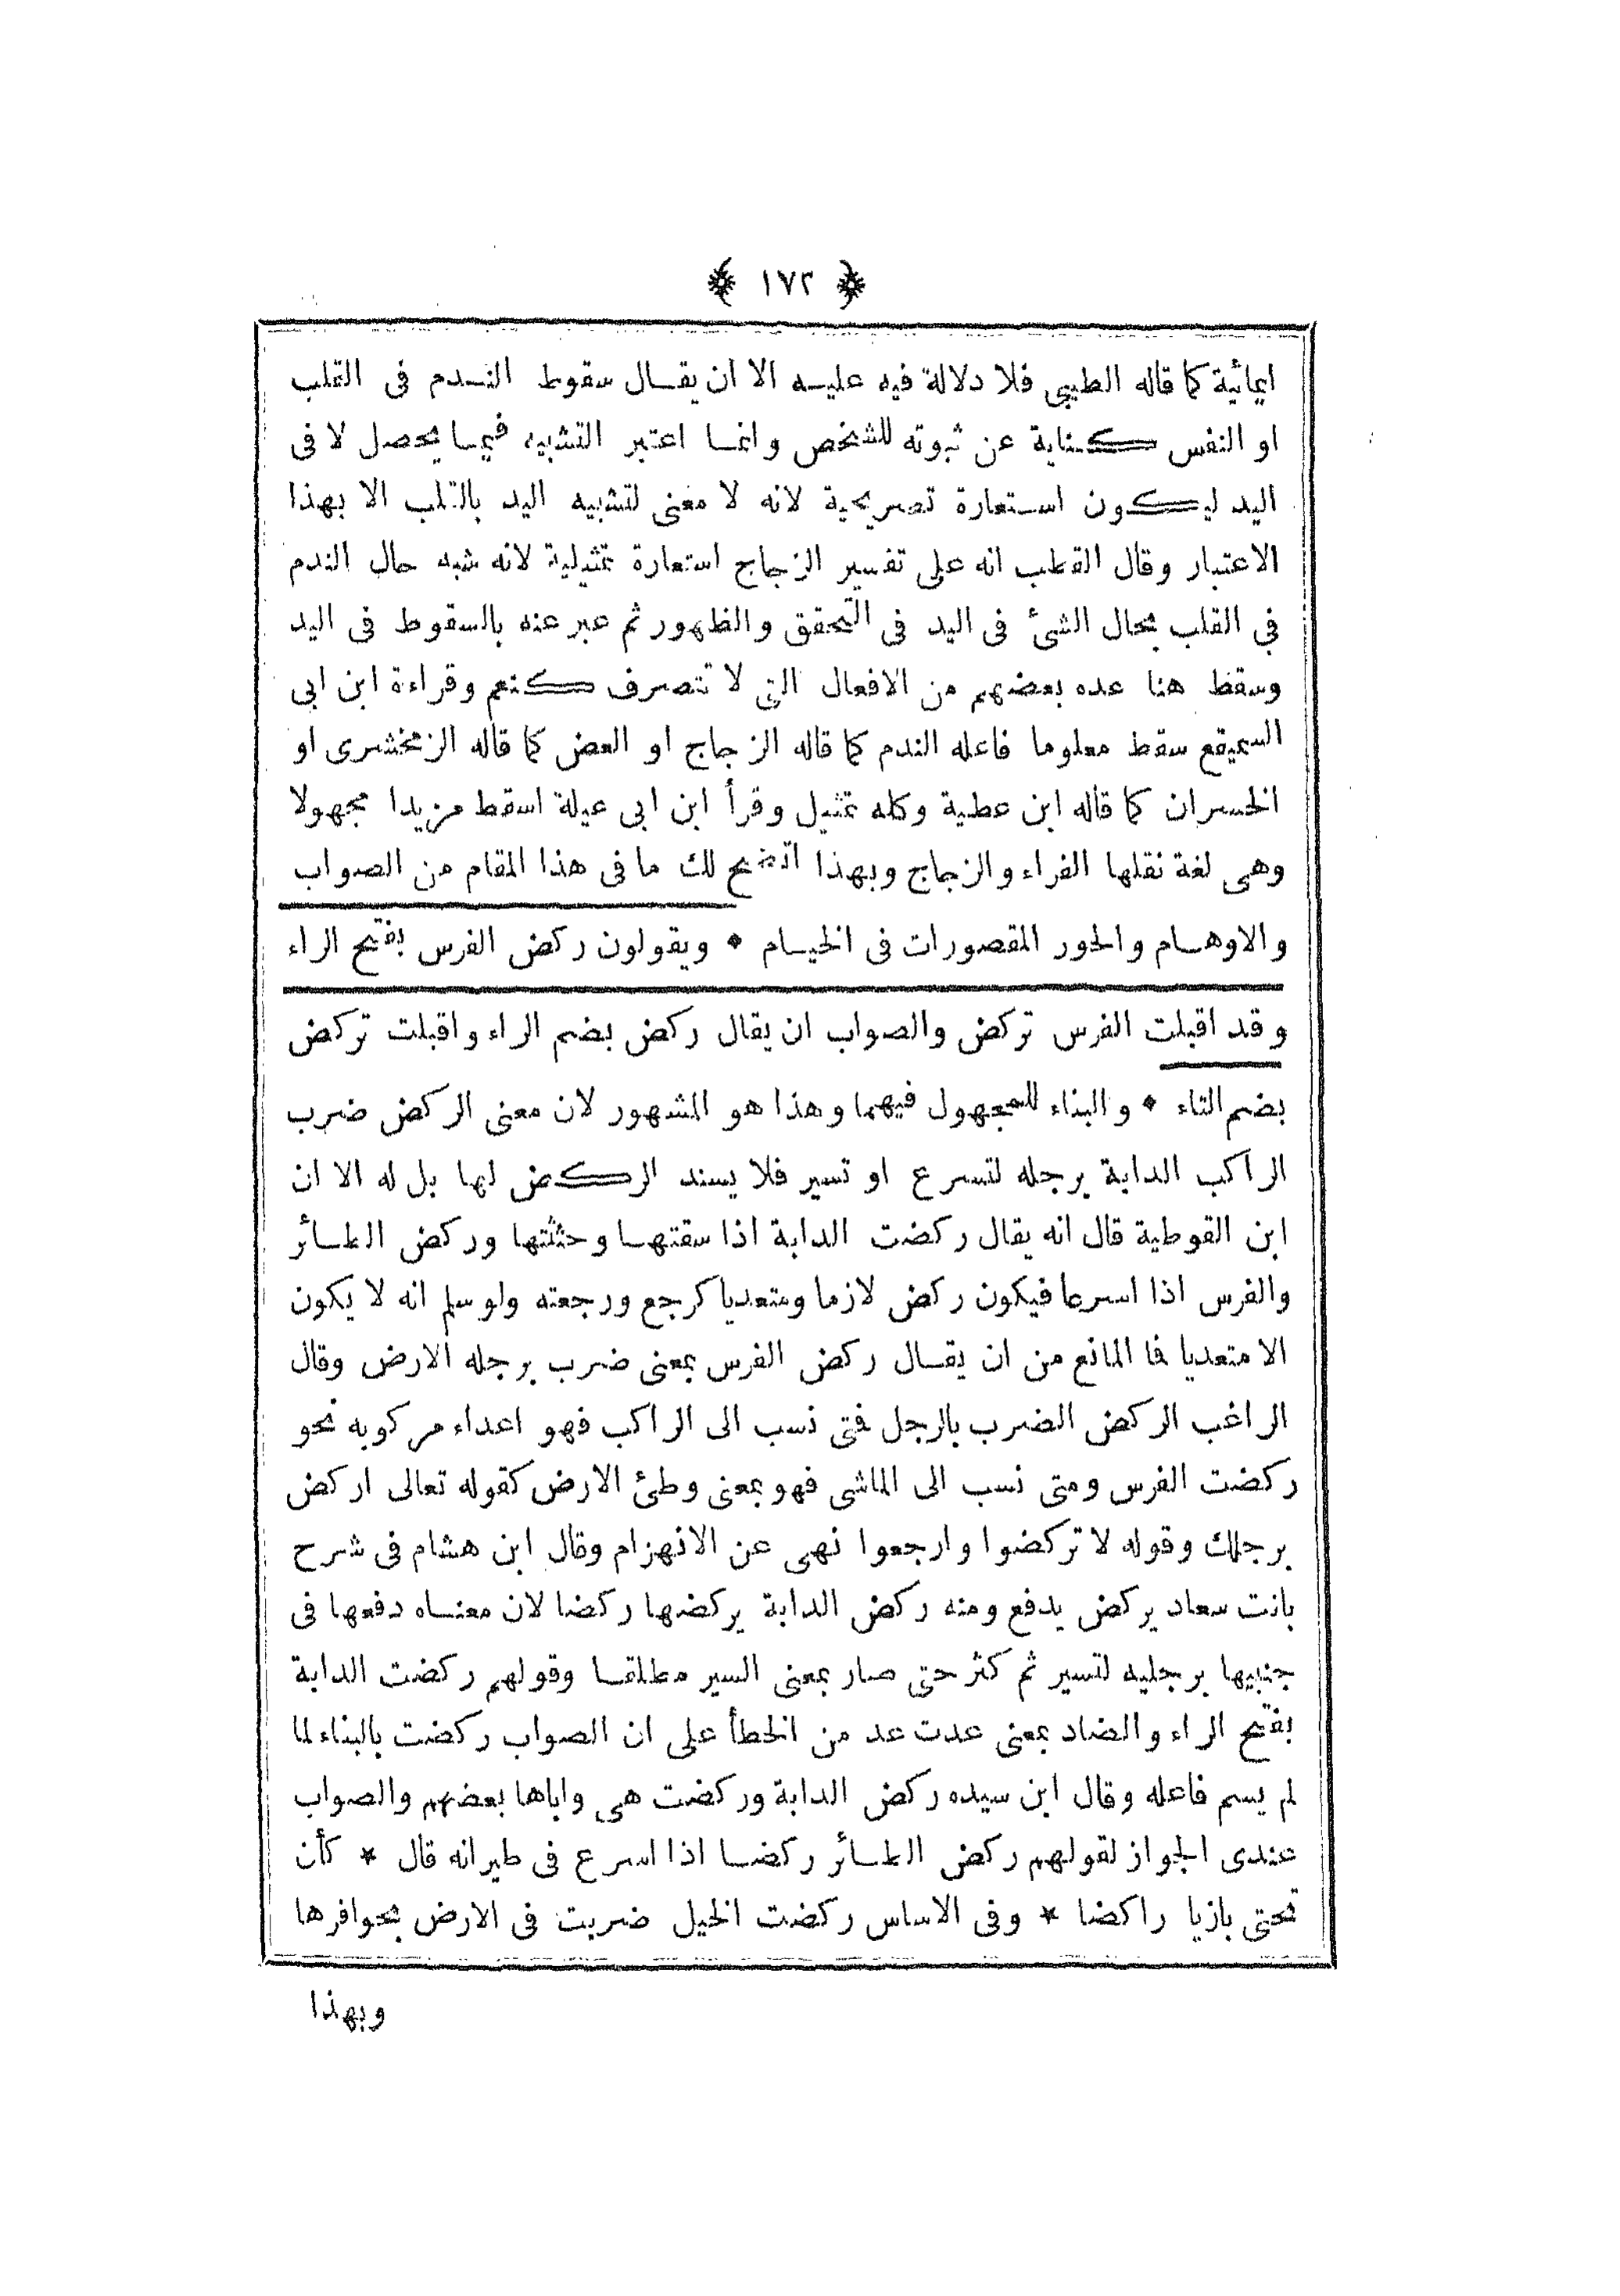 ﴿ ١٧٢ ﴾
ايمائية كما قاله الطيبى فلا دلالة فيه عليه الا ان يقال سقوط الندم فى القلب
او النفس كناية عن ثبوته للشخص وانما اعتبر التشبيه فيما يحصل لا فى
اليد ليكون استعارة تصريحية لانه لا معنى لتشبيه اليد بالقلب الا بهذا
الاعتبار وقال القطب انه على تفسير الزجاج استعارة تمثيلية لانه شبه حال الندم
فى القلب بحال الشئ فى اليد فى التحقق والظهور ثم عبر عنه بالسقوط فى اليد
وسقط هنا عده بعضهم من الافعال التى لا تتصرف كنعم وقراءة ابن ابى
السميقع سقط معلوما فاعله الندم كما قاله الزجاج او العض كما قاله الزمخشرى او
الخسران كما قاله ابن عطية وكله تمثيل وقرأ ابن ابى عيلة اسقط مزيدا مجهولا
وهى لغة نقلها الفراء والزجاج وبهذا اتضح لك ما فى هذا المقام من الصواب
والاوهام والحور المقصورات فى الخيام * ويقولون ركض الفرس بفتح الراء
وقد اقبلت الفرس تركض والصواب ان يقال ركض بضم الراء واقبلت تركض
بضم التاء * والبناء للمجهول فيهما وهذا هو المشهور لان معنى الركض ضرب
الراكب الدابة برجله لتسرع او تسير فلا يسند الركض لها بل له الا ان
ابن القوطية قال انه يقال ركضت الدابة اذا سقتها وحثثتها وركض الطائر
والفرس اذا اسرعا فيكون ركض لازما ومتعديا كرجع ورجعته ولو سلم انه لا يكون
الا متعديا فما المانع من ان يقال ركض الفرس بمعنى ضرب برجله الارض وقال
الراغب الركض الضرب بالرجل فمتى نسب الى الراكب فهو اعداء مركوبه نحو
ركضت الفرس ومتى نسب الى الماشى فهو بمعنى وطئ الارض كقوله تعالى اركض
برجلك وقوله لا تركضوا وارجعوا نهى عن الانهزام وقال ابن هشام فى شرح
بانت سعاد يركض يدفع ومنه ركض الدابة يركضها ركضا لان معناه دفعها فى
جنبيها برجليه لتسير ثم كثر حتى صار بمعنى السير مطلقا وقولهم ركضت الدابة
بفتح الراء والضاد بمعنى عدت عد من الخطأ على ان الصواب ركضت بالبناء لما
لم يسم فاعله وقال ابن سيده ركض الدابة وركضت هى واباها بعضهم والصواب
عندى الجواز لقولهم ركض الطائر ركضا اذا اسرع فى طيرانه قال * كأن
تحتى بازيا راكضا * وفى الاساس ركضت الخيل ضربت فى الارض بحوافرها
وبهذا